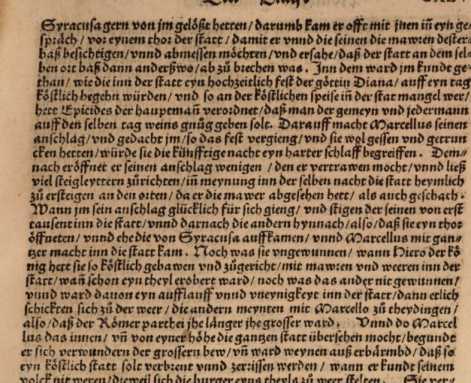 Syracusa gern von jm gelößt hetten/darumb kam er offt mit jnen in eyn ge
spräch/vor eynem thor der statt/damit er vnnd die seinen die mawren dester
baß besichtigen/vnnd abmessen möchten/vnd ersahe/daß der statt an dem sel
ben ort baß dann anderßwo/ab zů brechen was. Inn dem ward jm kunde ge
than/wie die inn der statt eyn hochzeitlich fest der göttin Diana/auff eyn tag
köstlich begehn würden/vnd so an der köstlichen speise in der stat mangel wer/
hett Epicides der hauptman verordnet/daß man der gemeyn vnd jederman
auff den selben tag weins gnůg geben solt. Darauff macht Marcellus seinen
anschlag/vnd gedacht jm/so das fest vergieng/vnd sie wol gessen vnd getrun
cken hetten/würde sie die künfftige nacht eyn harter schlaff begreiffen. Dem
nach eröffnet er seinen anschlag wenigen/den er vertrawen mocht/vnd ließ
viel steigleyttern zůrichten/in meynung inn der selben nacht die statt heymlich
zů ersteigen an den orten/da er die mawer abgesehen hett/als auch geschach.
Wann jm sein anschlag glücklich für sich gieng/vnd stigen der seinen von erst
tausent inn die statt/vnnd darnach die andern hynnach/also/daß sie eyn thor
öffneten/vnnd ehe die von Syracusa auffkamen/vnnd Marcellus mit gan
tzer macht inn die statt kam. Noch was sie vngewunnen/wann Hiero der kö
nig hett sie so köstlich gebawen vnd zůgericht/mit mawren vnd weeren inn der
statt/wañ schon eyn theyl erobert ward/noch was das ander nit gewunnen/
vnnd ward dauon eyn aufflauff vnnd vneynigkeyt inn der statt/dann etlich
schickten sich zů der weer/die andern meynten mit Marcello zů theydingen/
also/daß der Römer parthei jhe länger jhe grosser ward. Vnnd do Marcel
lus das innen/vñ von eyner höhe die gantzen statt übersehen mocht/begundt
er sich verwundern der grossern bew/vñ ward weynen auß erbärmbd/daß so
eyn köstlich statt solt verbrent vnd zerrissen werden/wann er kundt seinem
volck nit weren/dieweil sich die burger eyns theyls zů weer stelten.